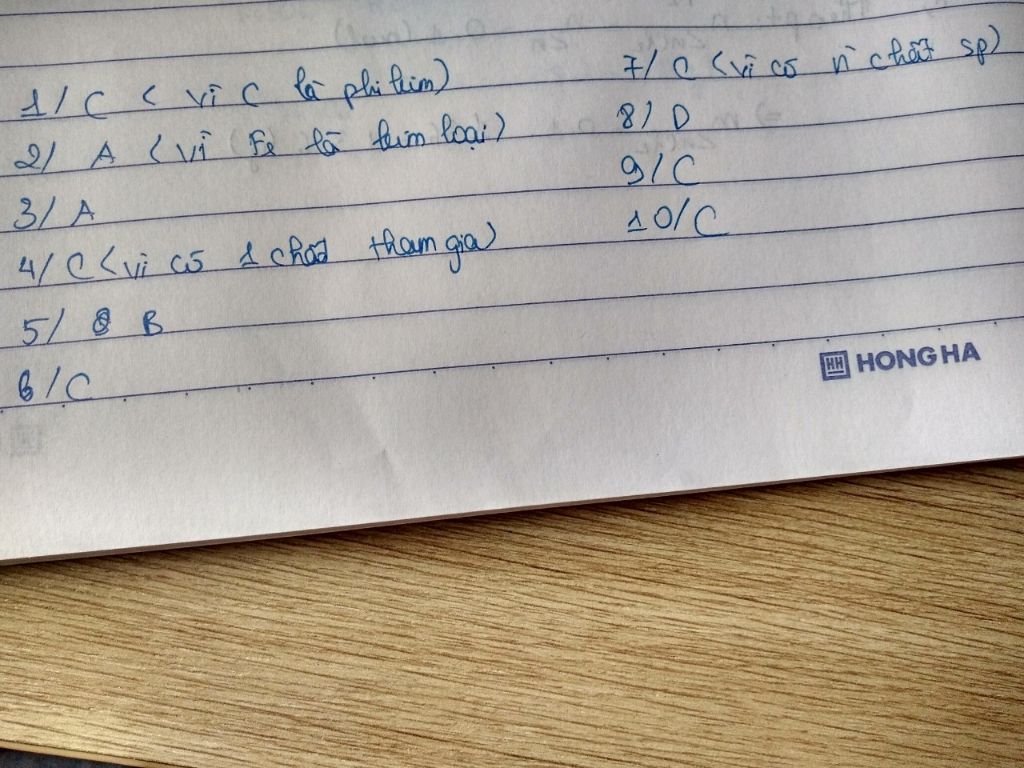 1/ C ( vì C là phi kim)
2/ A (vì Fe là kim loại)
3/ A
4/ C (vì có 1 chất tham gia)
5/ B
6/C
7/ C (vì có n chất sp)
8/ D
9/C
10/C
HH HONG HA